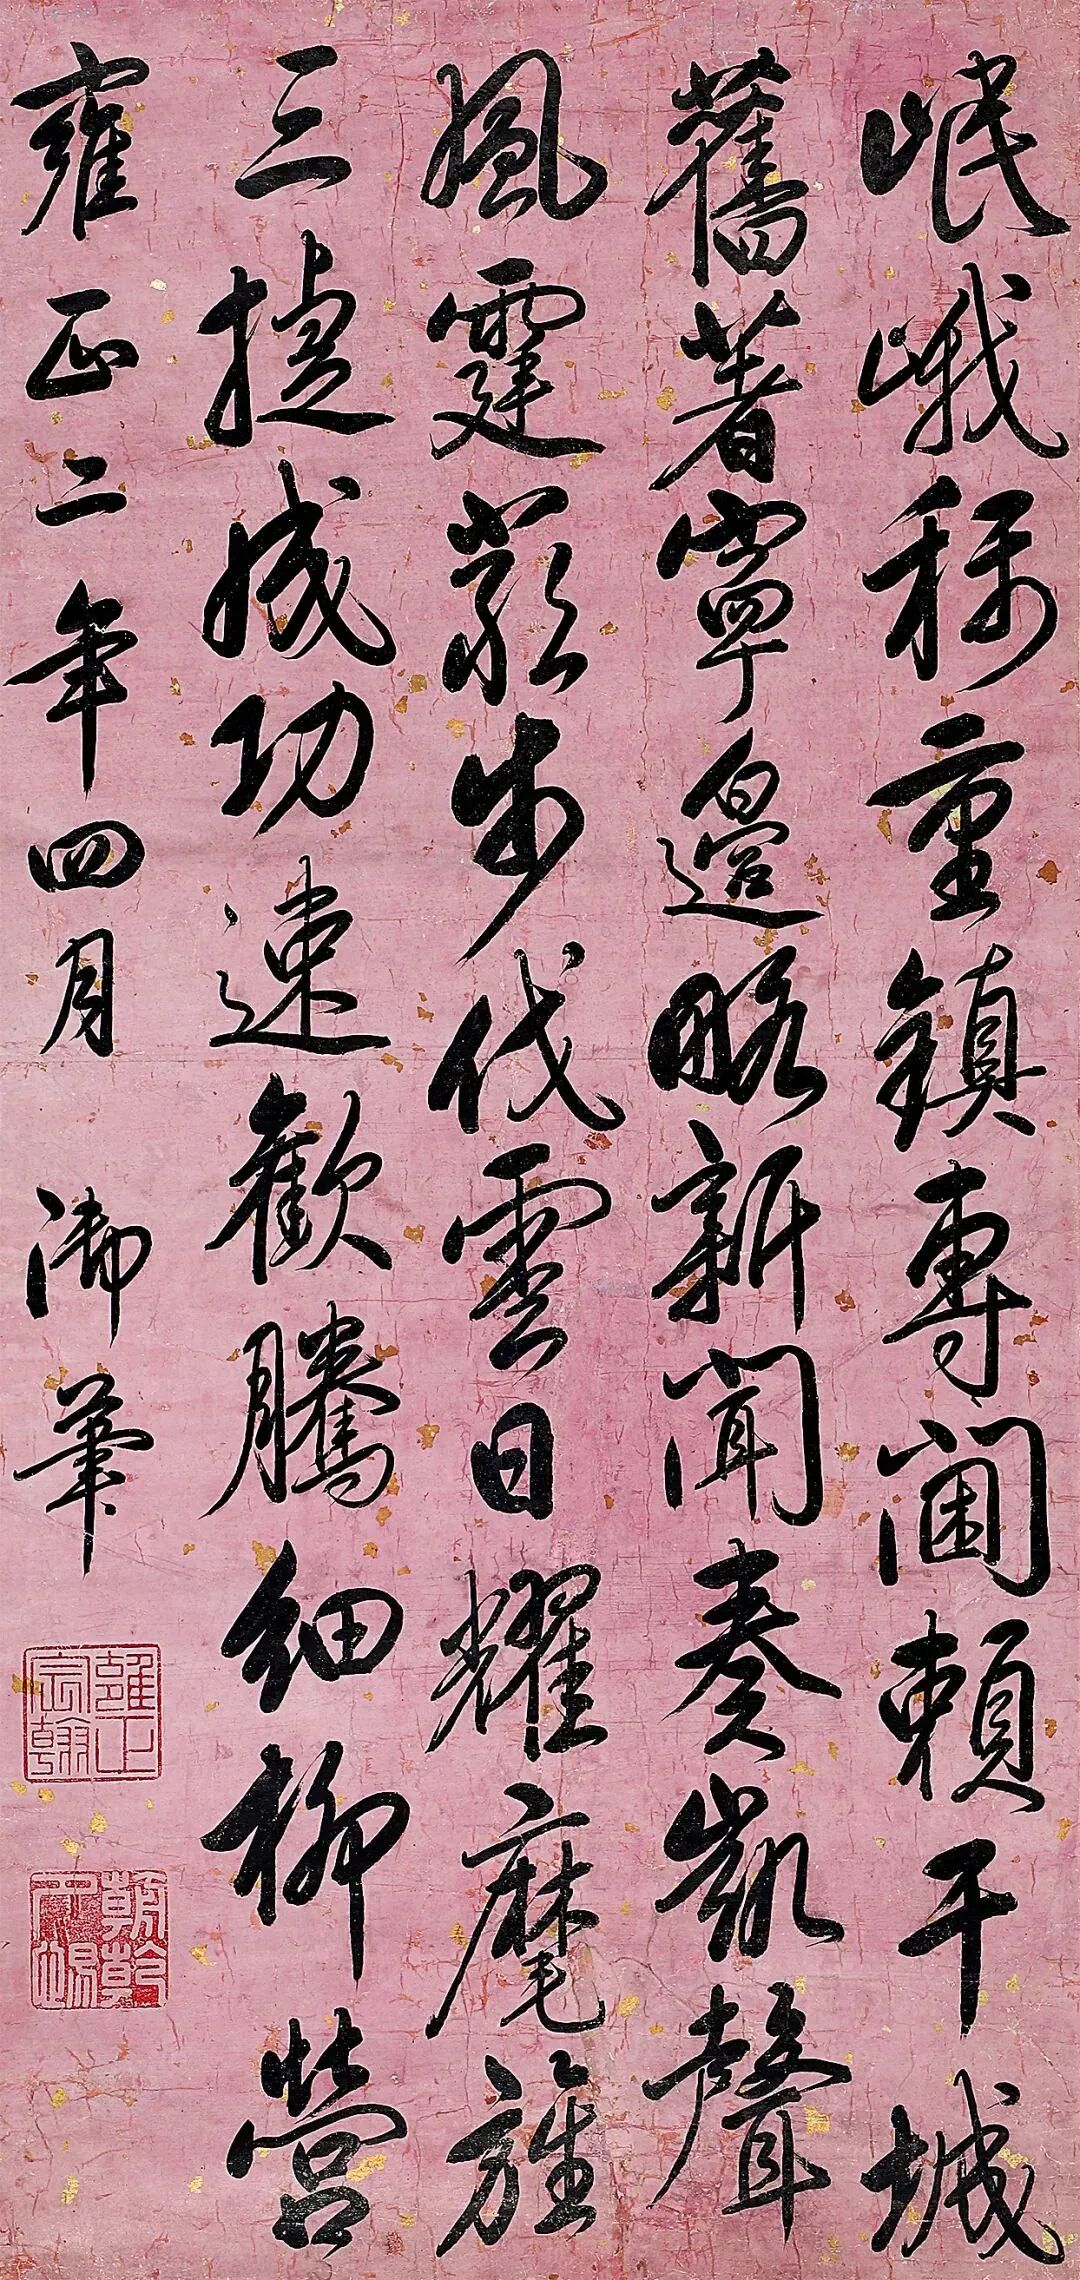 岷峨称重鎮專閫賴干城
舊著寧邊略新聞奏凱聲
風霆嚴步伐雲日耀麾旌
三捷成功速歡騰細柳營
雍正二年四月 御筆
雍正宸翰
朝乾夕惕